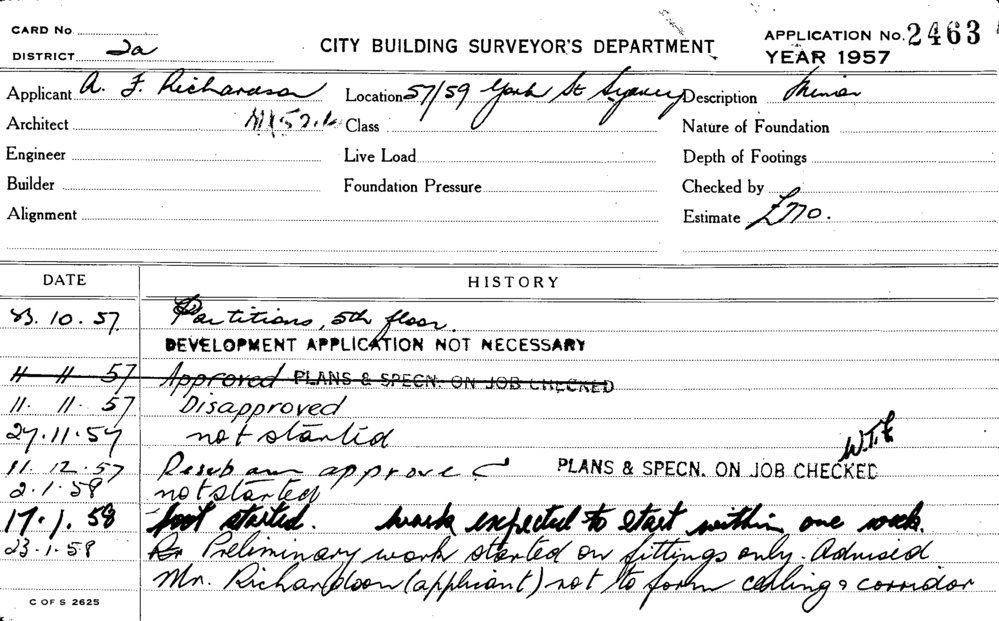 CARD No.
DISTRICT 2a
CITY BUILDING SURVEYOR'S DEPARTMENT
APPLICATION No. 2463
YEAR 1957
Applicant A. F. Richardson Location 57/59 York St Sydney Description Minor
Architect Class Nature of Foundation
Engineer Live Load Depth of Footings
Builder Foundation Pressure Checked by
Alignment Estimate £770.
DATE HISTORY
23.10.57 Partitions, 5th floor.
DEVELOPMENT APPLICATION NOT NECESSARY
11 11 57 Approved PLANS & SPECN. ON JOB CHECKED
11. 11. 57 Disapproved
27.11.57 not started
W.T.
11.12.57 approve PLANS & SPECN. ON JOB CHECKED
2.1.58 not started
17.1.58 not started. Work expected to start within one week.
23.1.58 Preliminary work started on fittings only. Advised
Mr. Richardson (applicant) not to form ceiling & corridor
C OF S 2625